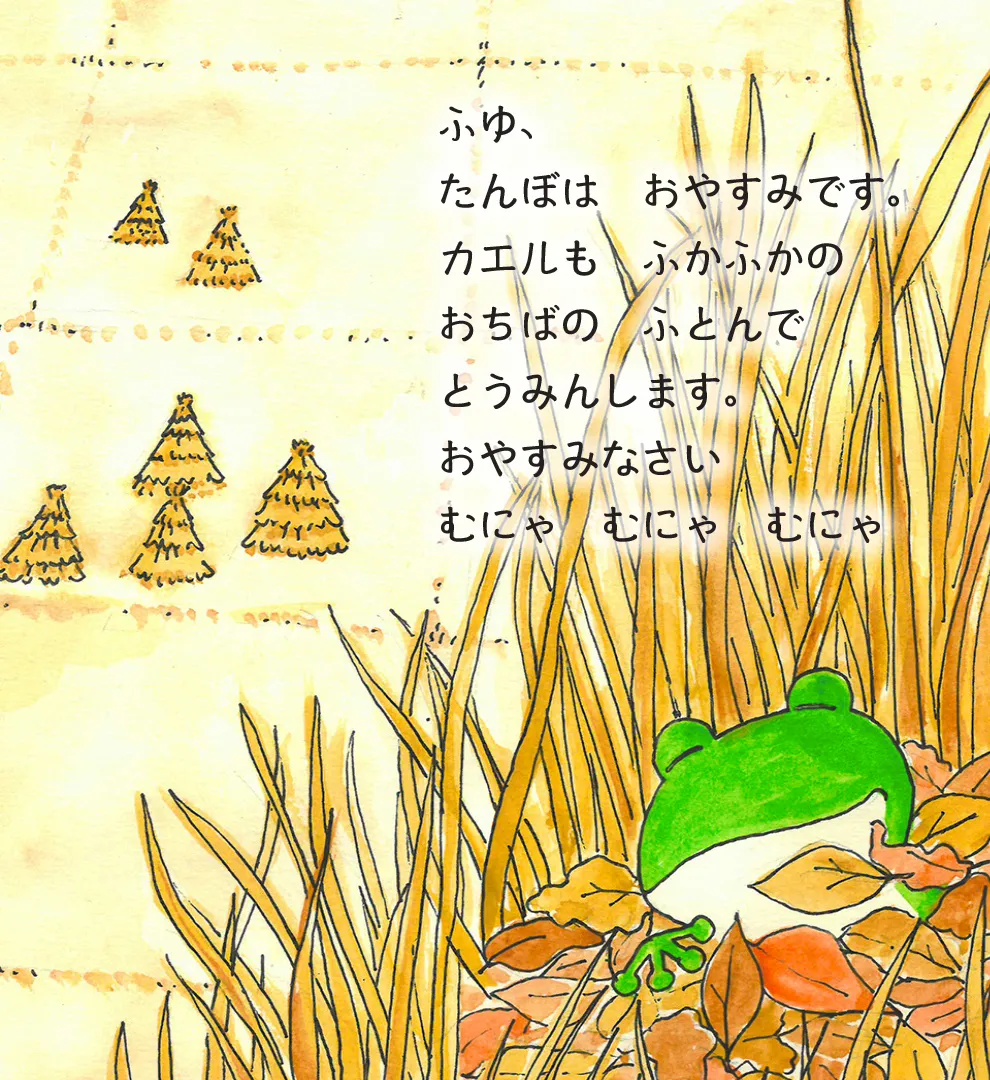 ふゆ、
たんぼは　おやすみです。
カエルも　ふかふかの
おちばの　ふとんで
とうみんします。
おやすみなさい
むにゃ　むにゃ　むにゃ